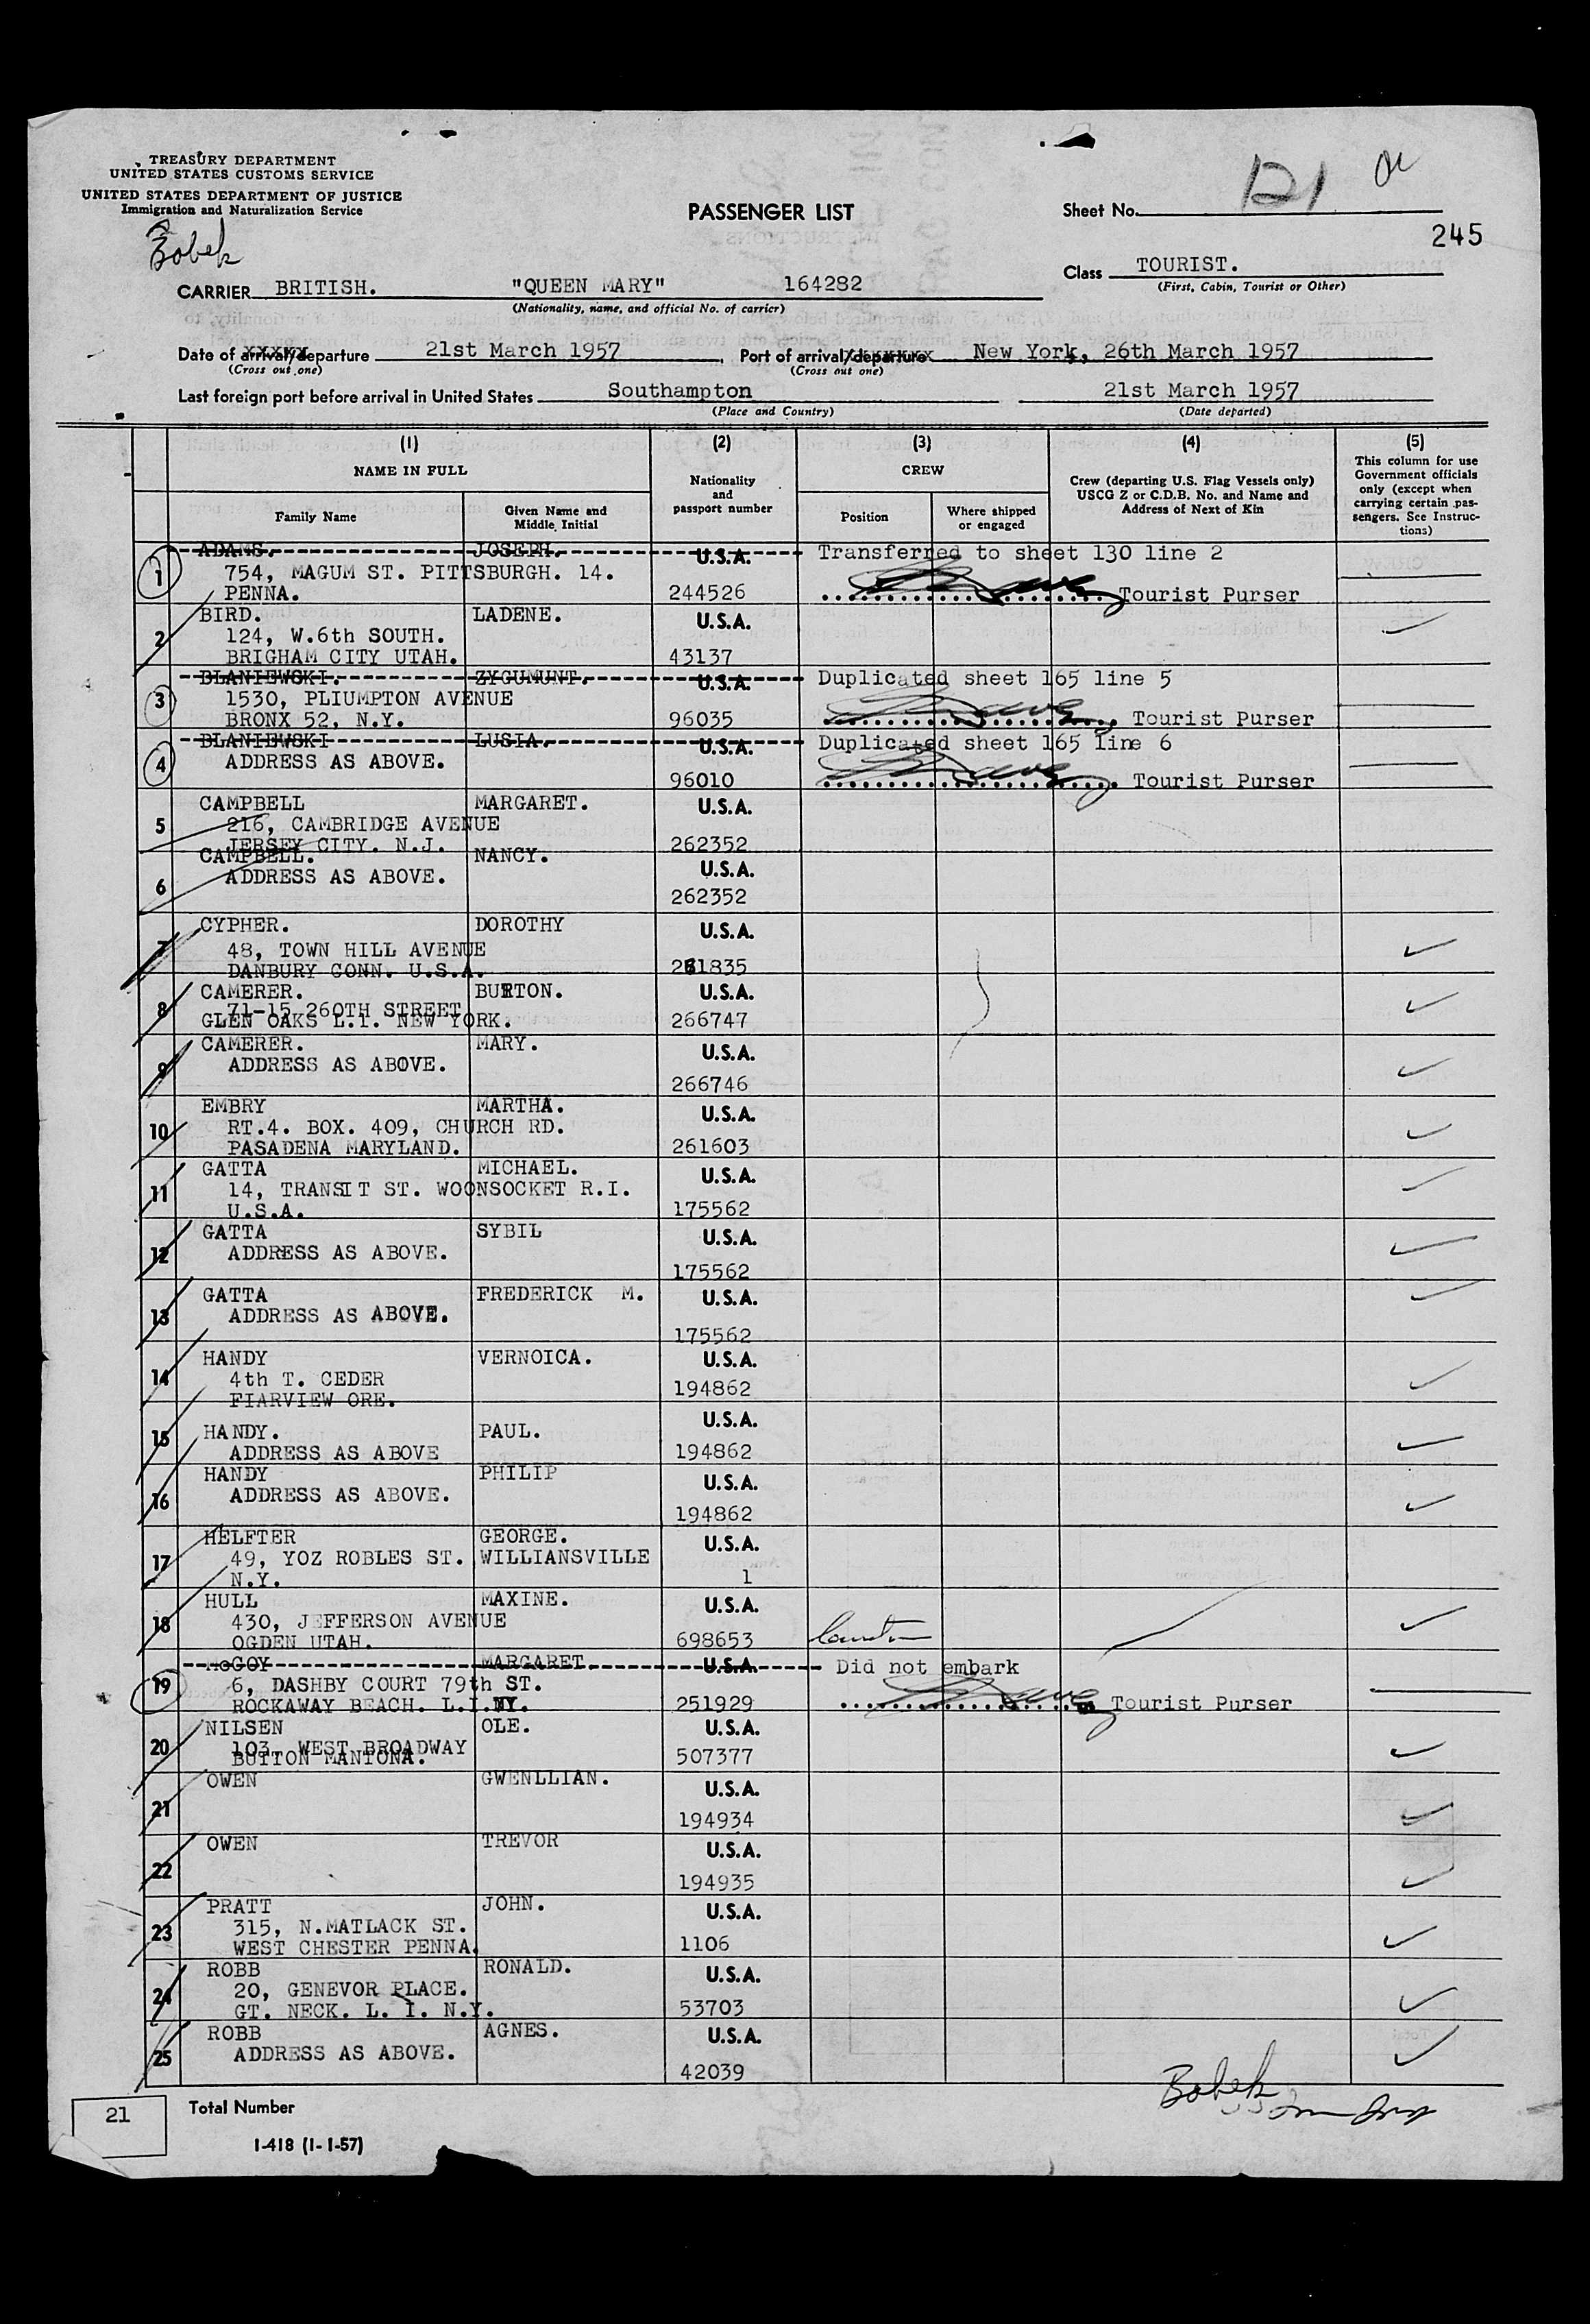 TREASURY DEPARTMENT
UNITED STATES CUSTOMS SERVICE
UNITED STATES DEPARTMENT OF JUSTICE
Immigration and Naturalization Service
Bobek
PASSENGER LIST
Sheet No. 121
245
Class TOURIST.
(First, Cabin, Tourist or Other)
CARRIER BRITISH. "QUEEN MARY" 164282
(Nationality, name, and official No. of carrier)
Date of arrival/departure 21st March 1957, Port of arrival/departure New York, 26th March 1957
(Cross out one) (Cross out one)
Last foreign port before arrival in United States Southampton 21st March 1957
(Place and Country) (Date departed)
(1) (2) (3) (4) (5)
NAME IN FULL
Family Name
Given Name and Middle Initial
Nationality and passport number
CREW
Position
Where shipped or engaged
Crew (departing U.S. Flag Vessels only) USCG Z or C.D.B. No. and Name and Address of Next of Kin
This column for use Government officials only (except when carrying certain passengers. See Instructions)
1 ADAMS. JOSEPH. U.S.A. Transferred to sheet 130 line 2
754, MAGUM ST. PITTSBURGH. 14.
PENNA. 244526 Tourist Purser
2 BIRD. LADENE. U.S.A.
124, W.6th SOUTH.
BRIGHAM CITY UTAH. 43137
3 BLANIEWSKI. ZYGUMUNT. U.S.A. Duplicated sheet 165 line 5
1530, PLIUMPTON AVENUE
BRONX 52, N.Y. 96035 Tourist Purser
4 BLANIEWSKI LUSIA. U.S.A. Duplicated sheet 165 line 6
ADDRESS AS ABOVE.
96010 Tourist Purser
5 CAMPBELL MARGARET. U.S.A.
216, CAMBRIDGE AVENUE
JERSEY CITY. N.J. 262352
6 CAMPBELL. NANCY. U.S.A.
ADDRESS AS ABOVE.
262352
7 CYPHER. DOROTHY U.S.A.
48, TOWN HILL AVENUE
DANBURY CONN. U.S.A. 261835
8 CAMERER. BURTON. U.S.A.
71-15 260TH STREET
GLEN OAKS L.I. NEW YORK. 266747
9 CAMERER. MARY. U.S.A.
ADDRESS AS ABOVE.
266746
10 EMBRY MARTHA. U.S.A.
RT.4. BOX. 409, CHURCH RD.
PASADENA MARYLAND. 261603
11 GATTA MICHAEL. U.S.A.
14, TRANSIT ST. WOONSOCKET R.I.
U.S.A. 175562
12 GATTA SYBIL U.S.A.
ADDRESS AS ABOVE.
175562
13 GATTA FREDERICK M. U.S.A.
ADDRESS AS ABOVE.
175562
14 HANDY VERNOICA. U.S.A.
4th T. CEDER
FIARVIEW ORE. 194862
15 HANDY. PAUL. U.S.A.
ADDRESS AS ABOVE 194862
16 HANDY PHILIP U.S.A.
ADDRESS AS ABOVE.
194862
17 HELFTER GEORGE. U.S.A.
49, YOZ ROBLES ST. WILLIANSVILLE
N.Y. 1
18 HULL MAXINE. U.S.A.
430, JEFFERSON AVENUE
OGDEN UTAH. 698653
19 McGOY MARGARET. U.S.A. Did not embark
6, DASHBY COURT 79th ST.
ROCKAWAY BEACH. L.I.NY. 251929 Tourist Purser
20 NILSEN OLE. U.S.A.
103, WEST BROADWAY
BUTTON MANTONA. 507377
21 OWEN GWENLLIAN. U.S.A.
194934
22 OWEN TREVOR U.S.A.
194935
23 PRATT JOHN. U.S.A.
315, N.MATLACK ST.
WEST CHESTER PENNA. 1106
24 ROBB RONALD. U.S.A.
20, GENEVOR PLACE.
GT. NECK. L. I. N.Y. 53703
25 ROBB AGNES. U.S.A.
ADDRESS AS ABOVE.
42039
Bobek
21 Total Number
I-418 (1-1-57)